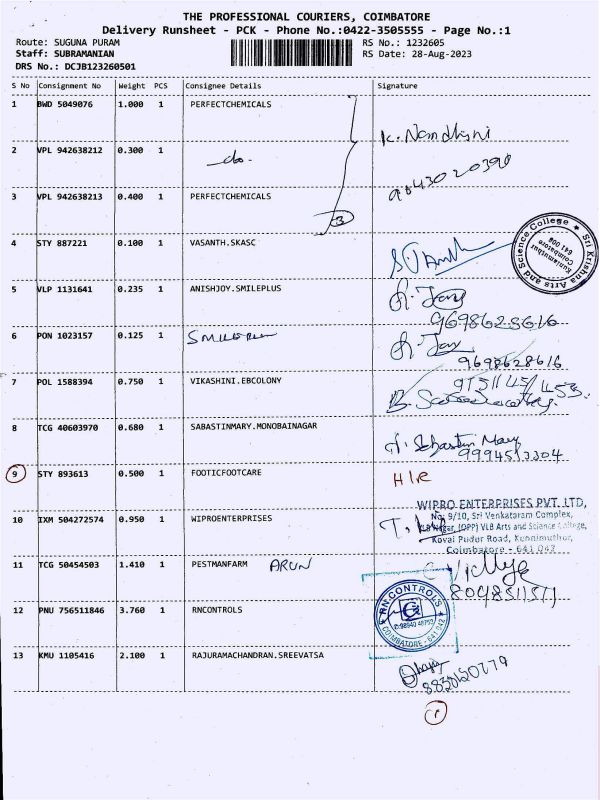 THE PROFESSIONAL COURIERS, COIMBATORE
Delivery Runsheet - PCK - Phone No.:0422-3505555 - Page No.:1
Route: SUGUNA PURAM RS No.: 1232605
Staff: SUBRAMANIAN RS Date: 28-Aug-2023
DRS No.: DCJB123260501
S No Consignment No Weight PCS Consignee Details Signature
1 BWD 5049076 1.000 1 PERFECTCHEMICALS
K. Nandhini
2 VPL 942638212 0.300 1 -do-
9843020390
3 VPL 942638213 0.400 1 PERFECTCHEMICALS
3
4 STY 887221 0.100 1 VASANTH.SKASC
Sri Krishna Arts and Science College
Kuniamuthur
Coimbatore
641 008
5 VLP 1131641 0.235 1 ANISHJOY.SMILEPLUS
9698628616
6 PON 1023157 0.125 1
9698628616
7 POL 1588394 0.750 1 VIKASHINI.EBCOLONY
8 TCG 40603970 0.680 1 SABASTINMARY.MONOBAINAGAR
Sebastin Mary
9 STY 893613 0.500 1 FOOTICFOOTCARE
WIPRO ENTERPRISES PVT. LTD,
No: 9/10, Sri Venkataram Complex,
10 IXM 504272574 0.950 1 WIPROENTERPRISES
VLB Nagar, (OPP) VLB Arts and Science College,
Kovai Pudur Road, Kunnimuthur,
Coimbatore - 641 042
11 TCG 50454503 1.410 1 PESTMANFARM ARUN
12 PNU 756511846 3.760 1 RNCONTROLS
RN CONTROLS
COIMBATORE - 641 042
13 KMU 1105416 2.100 1 RAJURAMACHANDRAN.SREEVATSA